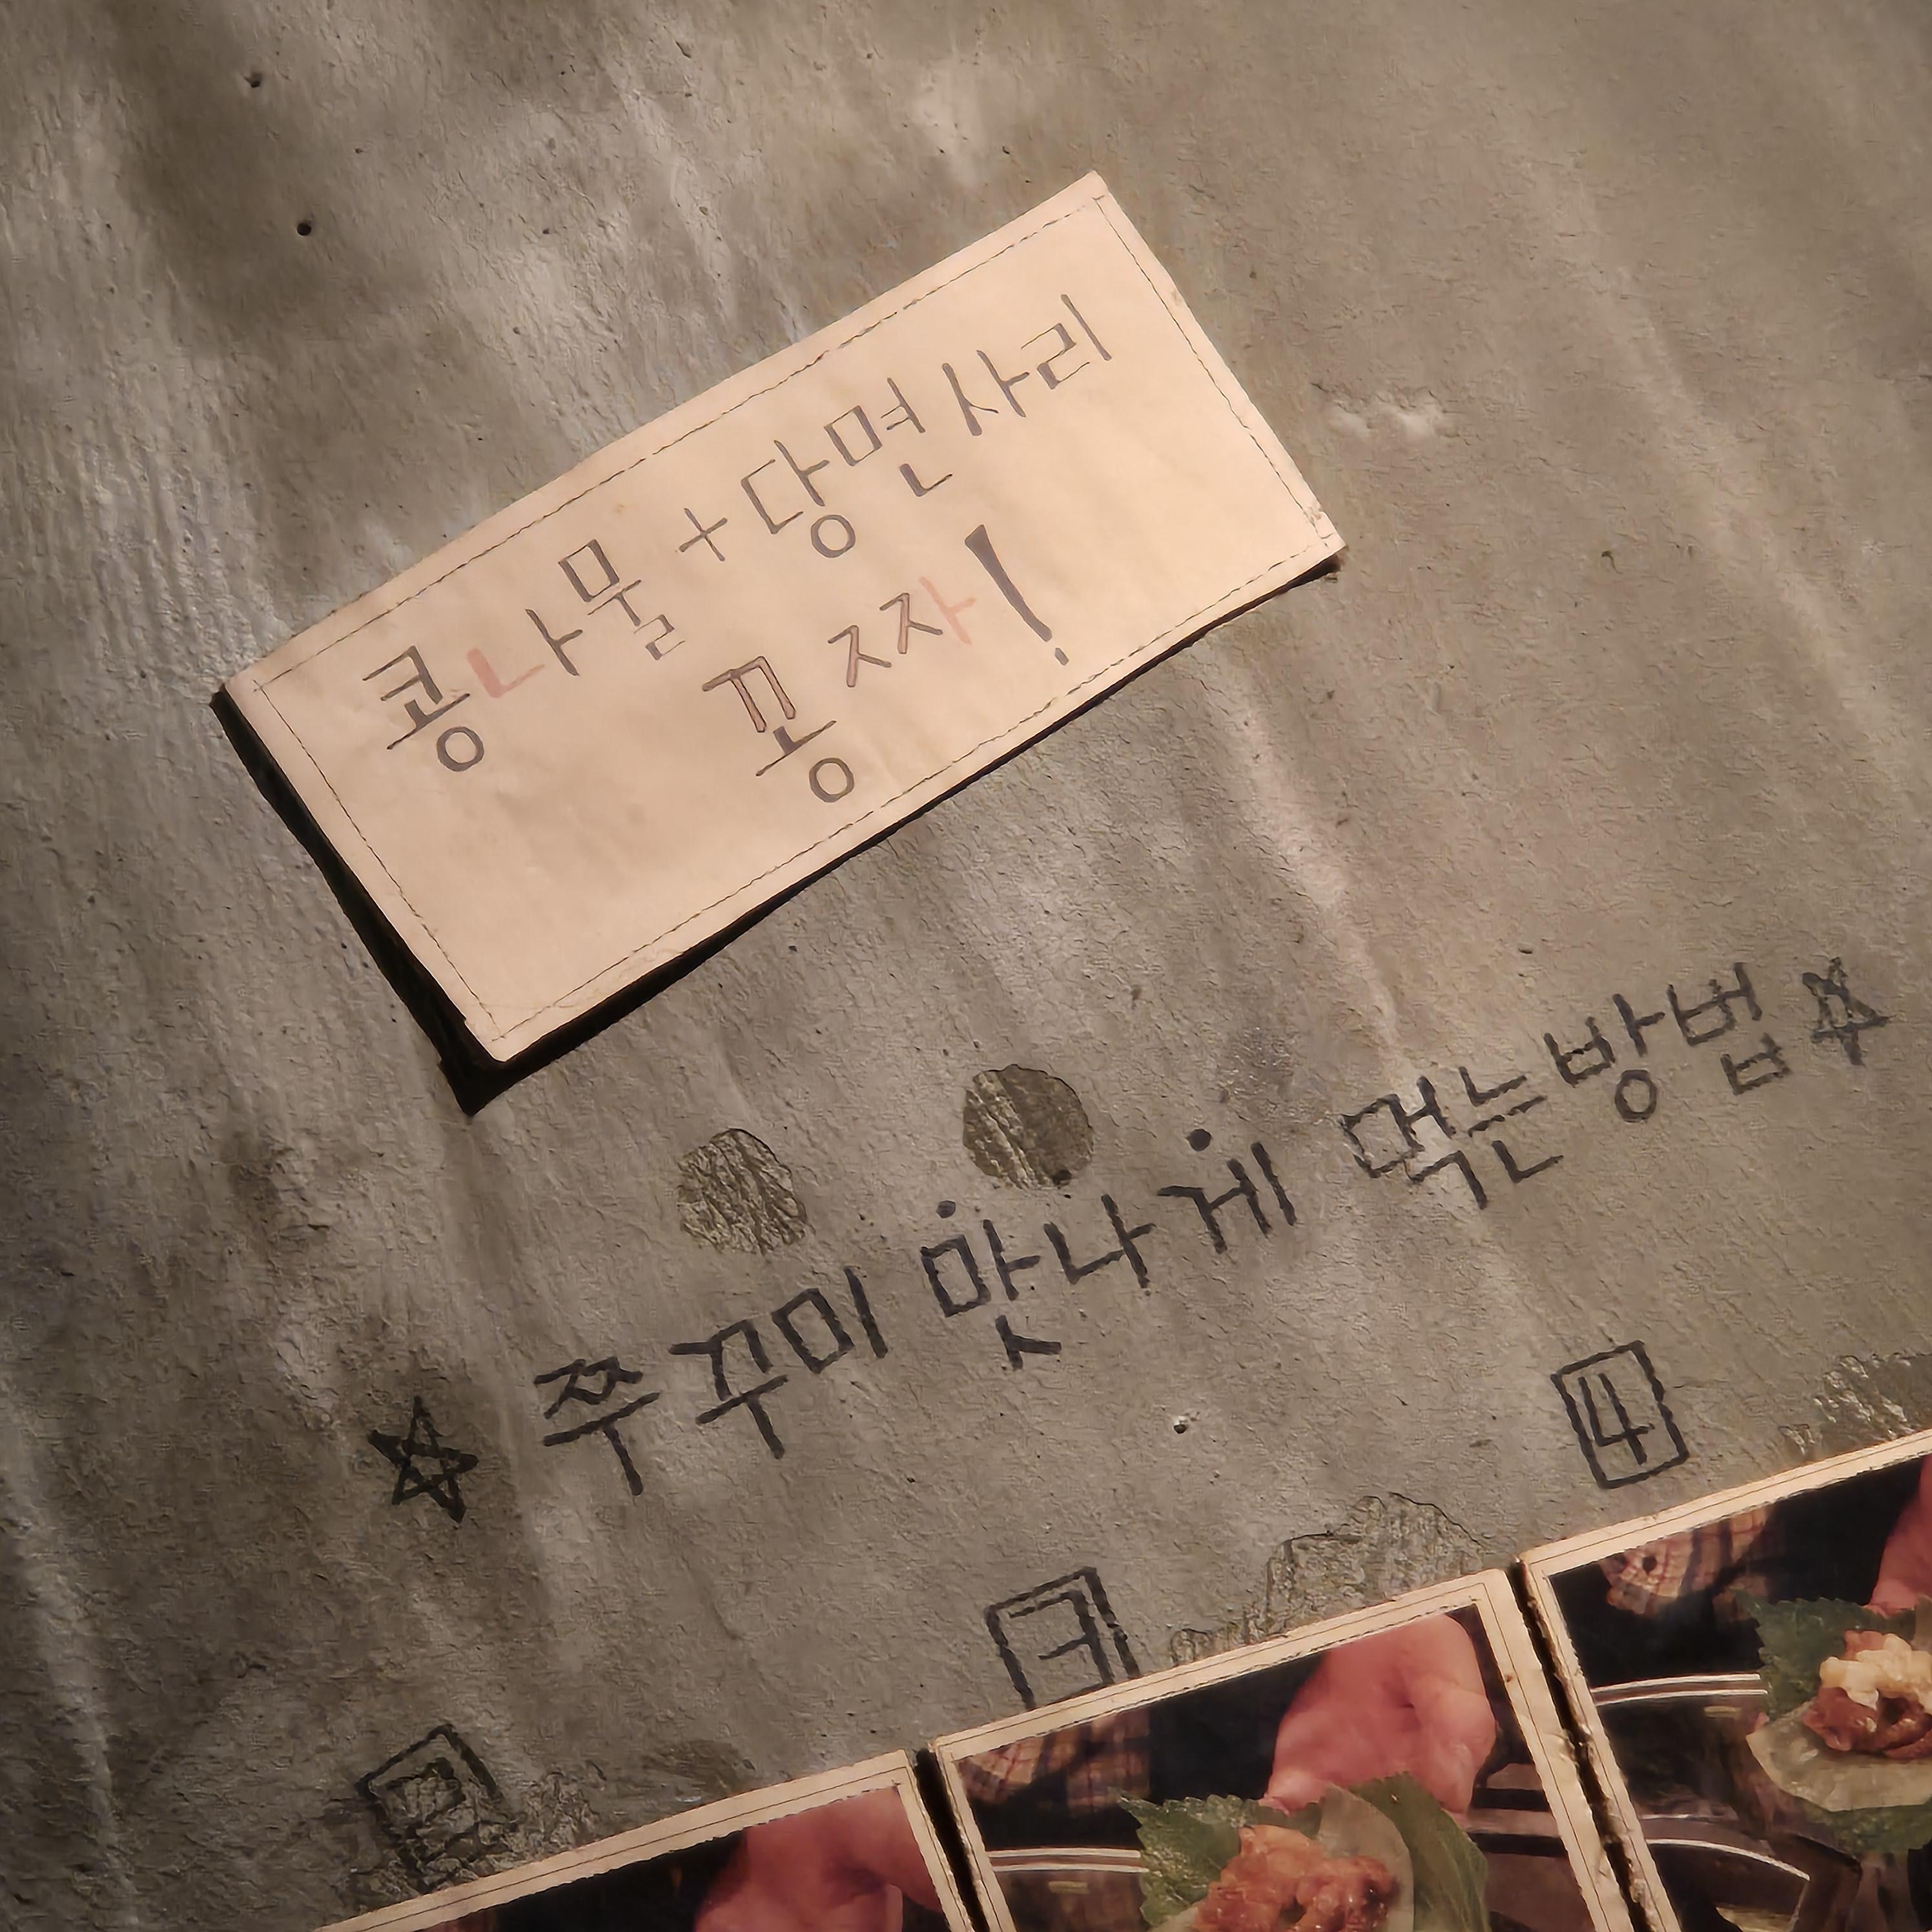 콩나물+당면사리
꽁짜!
☆ 쭈꾸미 맛나게 먹는방법 ☆
2 3 4